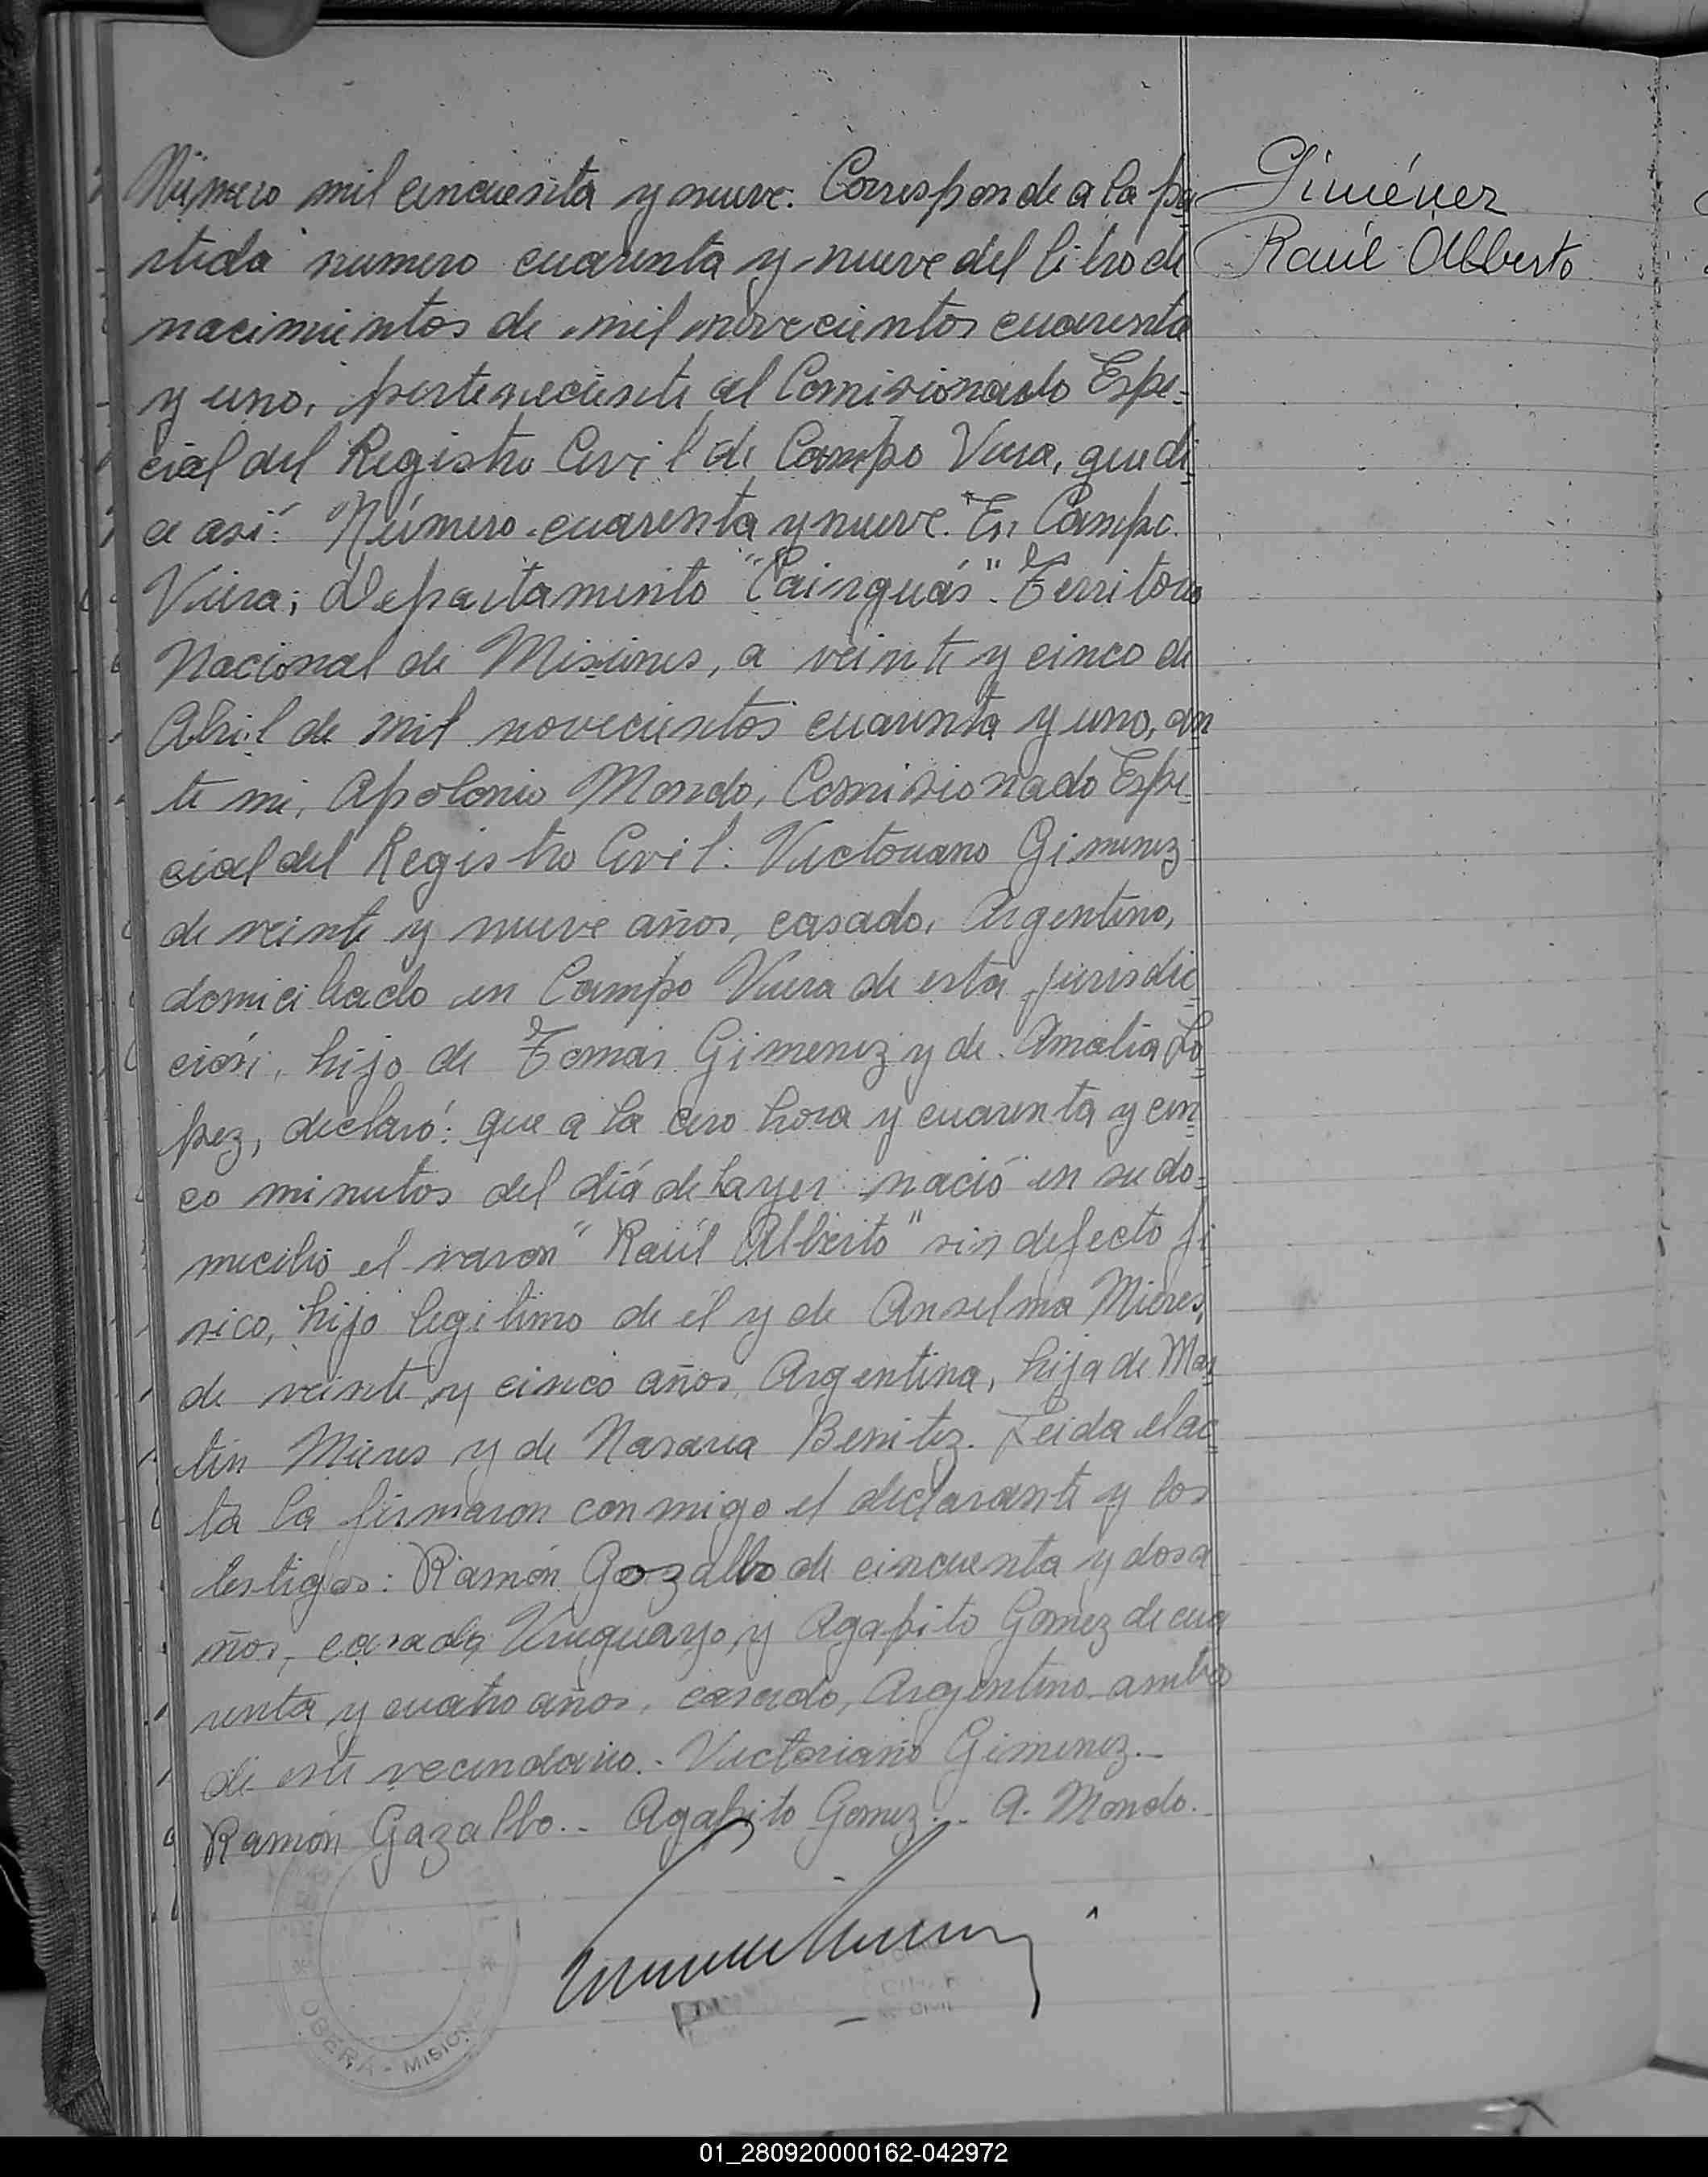 Número mil cincuenta y nueve. Corresponde a la pa
rtida numero cuarenta y nueve del libro de
nacimientos de mil novecientos cuarenta
y uno, perteneciente al Comisionado Espe=
cial del Registro Civil de Campo Viera, que di
ce asi: Número cuarenta y nueve. En Campo
Viera; Departamento "Cainguás". Territorio
Nacional de Misiones, a veinte y cinco de
Abril de mil novecientos cuarenta y uno, an
te mi, Apolonio Mondo, Comisionado Espe=
cial del Registro Civil: Victoriano Gimenez
de veinte y nueve años, casado, Argentino,
domiciliado en Campo Viera de esta jurisdic
ción, hijo de Tomas Gimenez y de Amalia Lo
pez, declaró: que a la cero hora y cuarenta y cin
co minutos del día de hayer nació en su do=
micilio el varon "Raúl Alberto" sin defecto fi
sico, hijo legitimo de él y de Anselma Mieres,
de veinte y cinco años, Argentina, hija de Mar
tin Mieres y de Nasaria Benitez. Leida el ac
ta la firmaron conmigo el declarante y los
testigos: Ramón Gozalbo de cincuenta y dos a
ños, casado, Uruguayo, y Agapito Gomez de cua
renta y cuatro años, casado, Argentino ambos
de este vecindario.- Victoriano Gimenez.-
Ramón Gazalbo.- Agapito Gomez.- A. Mondo.-
Giménez
Raúl Alberto
OBERÁ - MISIONES
CIVIL
01_280920000162-042972